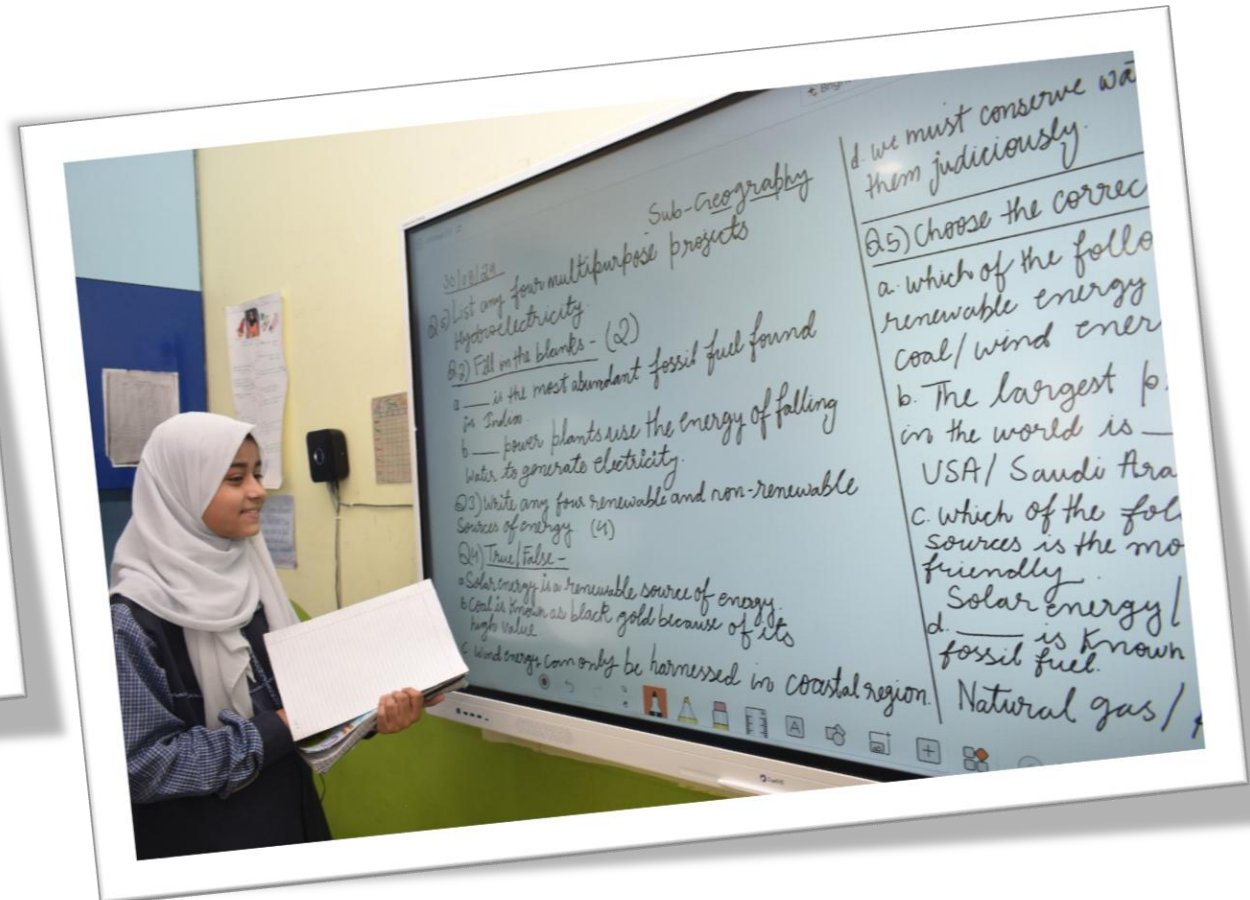 Sub-Geography
30/08/24
Q5) List any four multipurpose projects
Hydroelectricity.
Q2) Fill in the blanks - (2)
a ___ is the most abundant fossil fuel found
in India.
b ___ power plants use the energy of falling
water to generate electricity.
Q3) Write any four renewable and non-renewable
Sources of energy. (4)
Q4) True/False -
a Solar energy is a renewable source of energy.
b Coal is known as black gold because of its
high value
c wind energy can only be harnessed in coastal region.
d. we must conserve wa
them judiciously.
Q5) Choose the correc
a. which of the follo
renewable energy
coal/wind ener
b. The largest p
in the world is ___
USA/ Saudi Ara
c. which of the fol
sources is the mo
friendly.
Solar energy/
d. ___ is known
fossil fuel.
Natural gas/